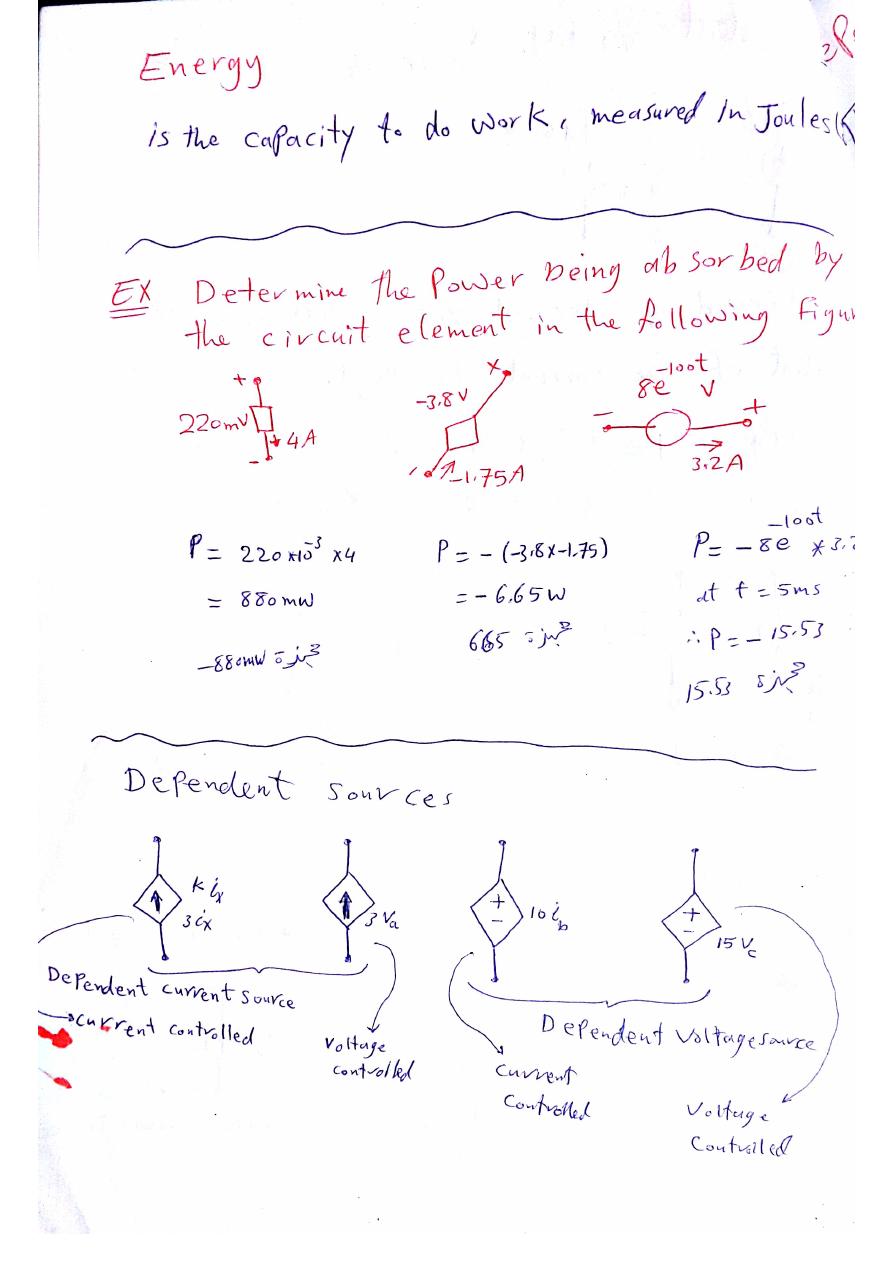 Energy
is the capacity to do work, measured in Joules
EX Determine the Power being absorbed by
the circuit element in the following
+
220mV
4A
-
-3.8V
x
-1.75A
8e^-100t V
-
+
3.2A
P = 220x10^-3 x4
= 880mW
-880mW مجهزة
P = - (-3.8x-1.75)
= - 6.65W
665 مجهزة
P = - 8e^-100t * 3.
at t = 5ms
∴ P = - 15.53
15.53 مجهزة
Dependent sources
K ix
3 ix
3 Va
+
-
10 ib
+
-
15 Vc
Dependent current source
current controlled
Voltage
controlled
Dependent Voltage source
Current
Controlled
Voltage
Controlled